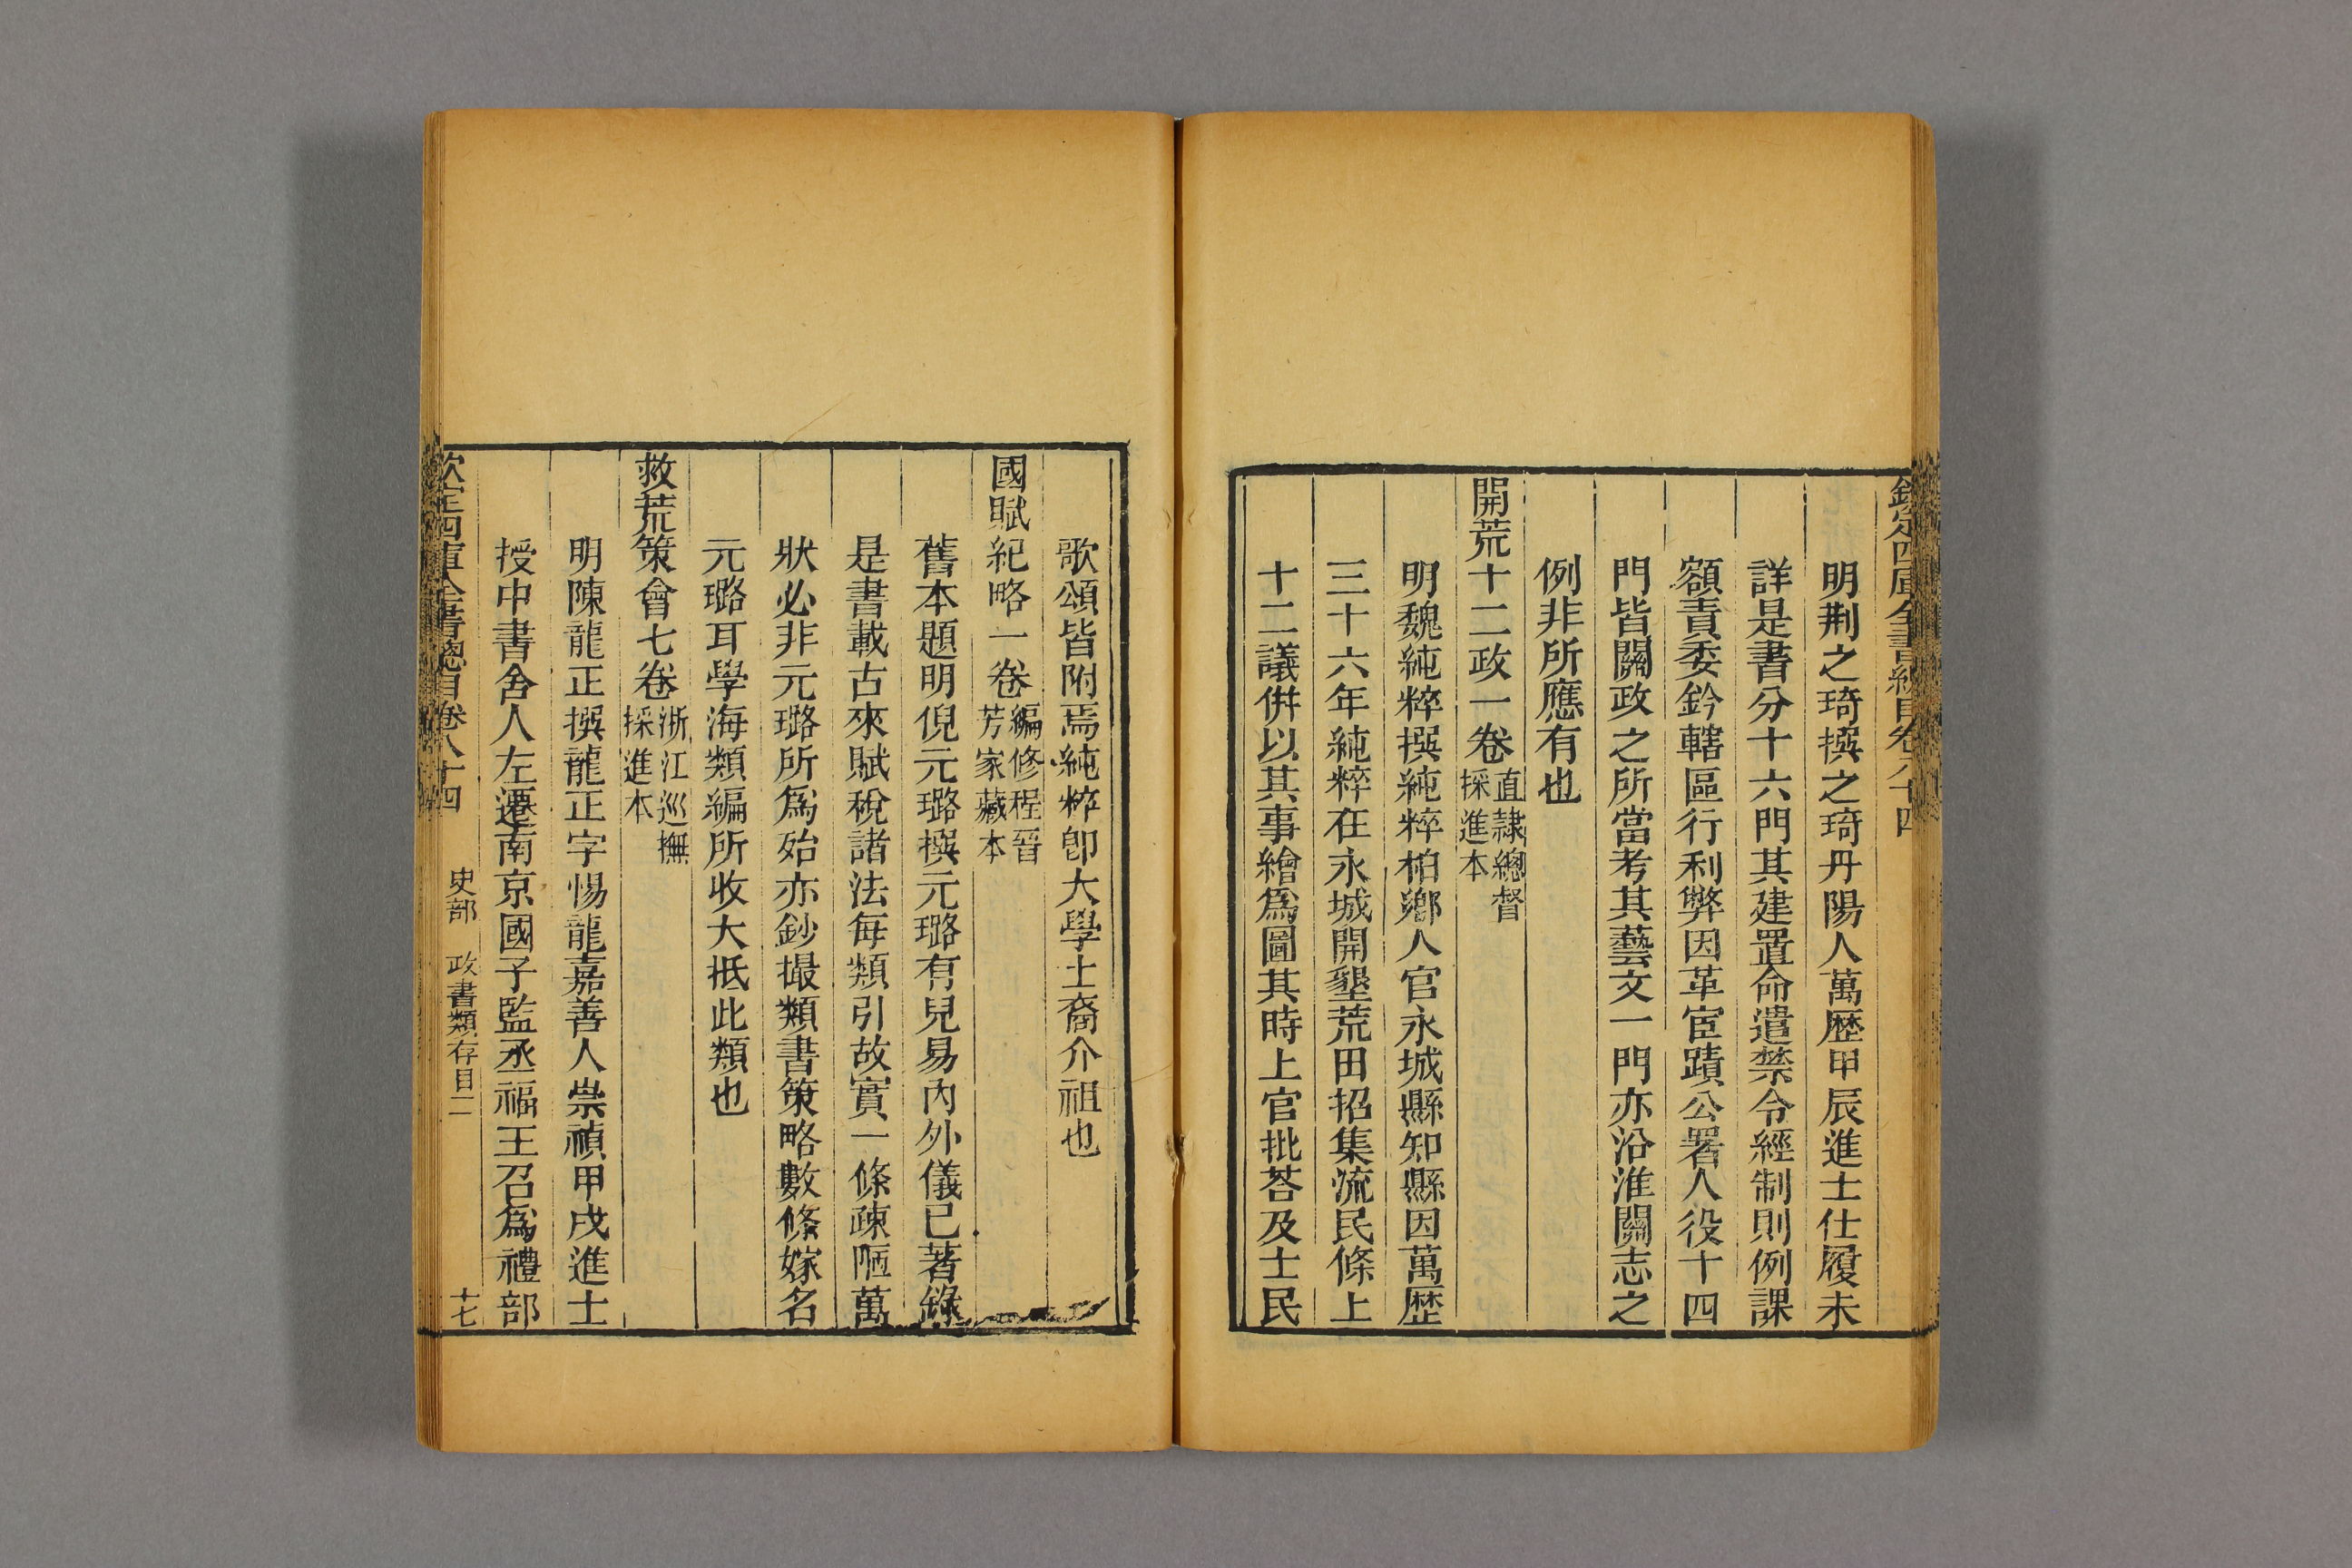 欽定四庫全書總目卷八十四
明荆之琦撰之琦丹陽人萬歷甲辰進士仕履未
詳是書分十六門其建置命遣禁令經制則例課
額責委鈐轄區行利弊因革宦蹟公署人役十四
門皆關政之所當考其藝文一門亦沿淮關志之
例非所應有也
開荒十二政一卷直隸總督採進本
明魏純粹撰純粹柏鄉人官永城縣知縣因萬歷
三十六年純粹在永城開墾荒田招集流民條上
十二議併以其事繪爲圖其時上官批荅及士民
歌頌皆附焉純粹卽大學士裔介祖也
國賦紀略一卷編修程晉芳家藏本
舊本題明倪元璐撰元璐有兒易內外儀已著錄
是書載古來賦稅諸法每類引故實一條疎陋萬
狀必非元璐所爲殆亦鈔撮類書策略數條嫁名
元璐耳學海類編所收大抵此類也
救荒策會七卷浙江巡撫採進本
明陳龍正撰龍正字惕龍嘉善人崇禎甲戌進士
授中書舍人左遷南京國子監丞福王召爲禮部
欽定四庫全書總目卷八十四 史部 政書類存目二 十七